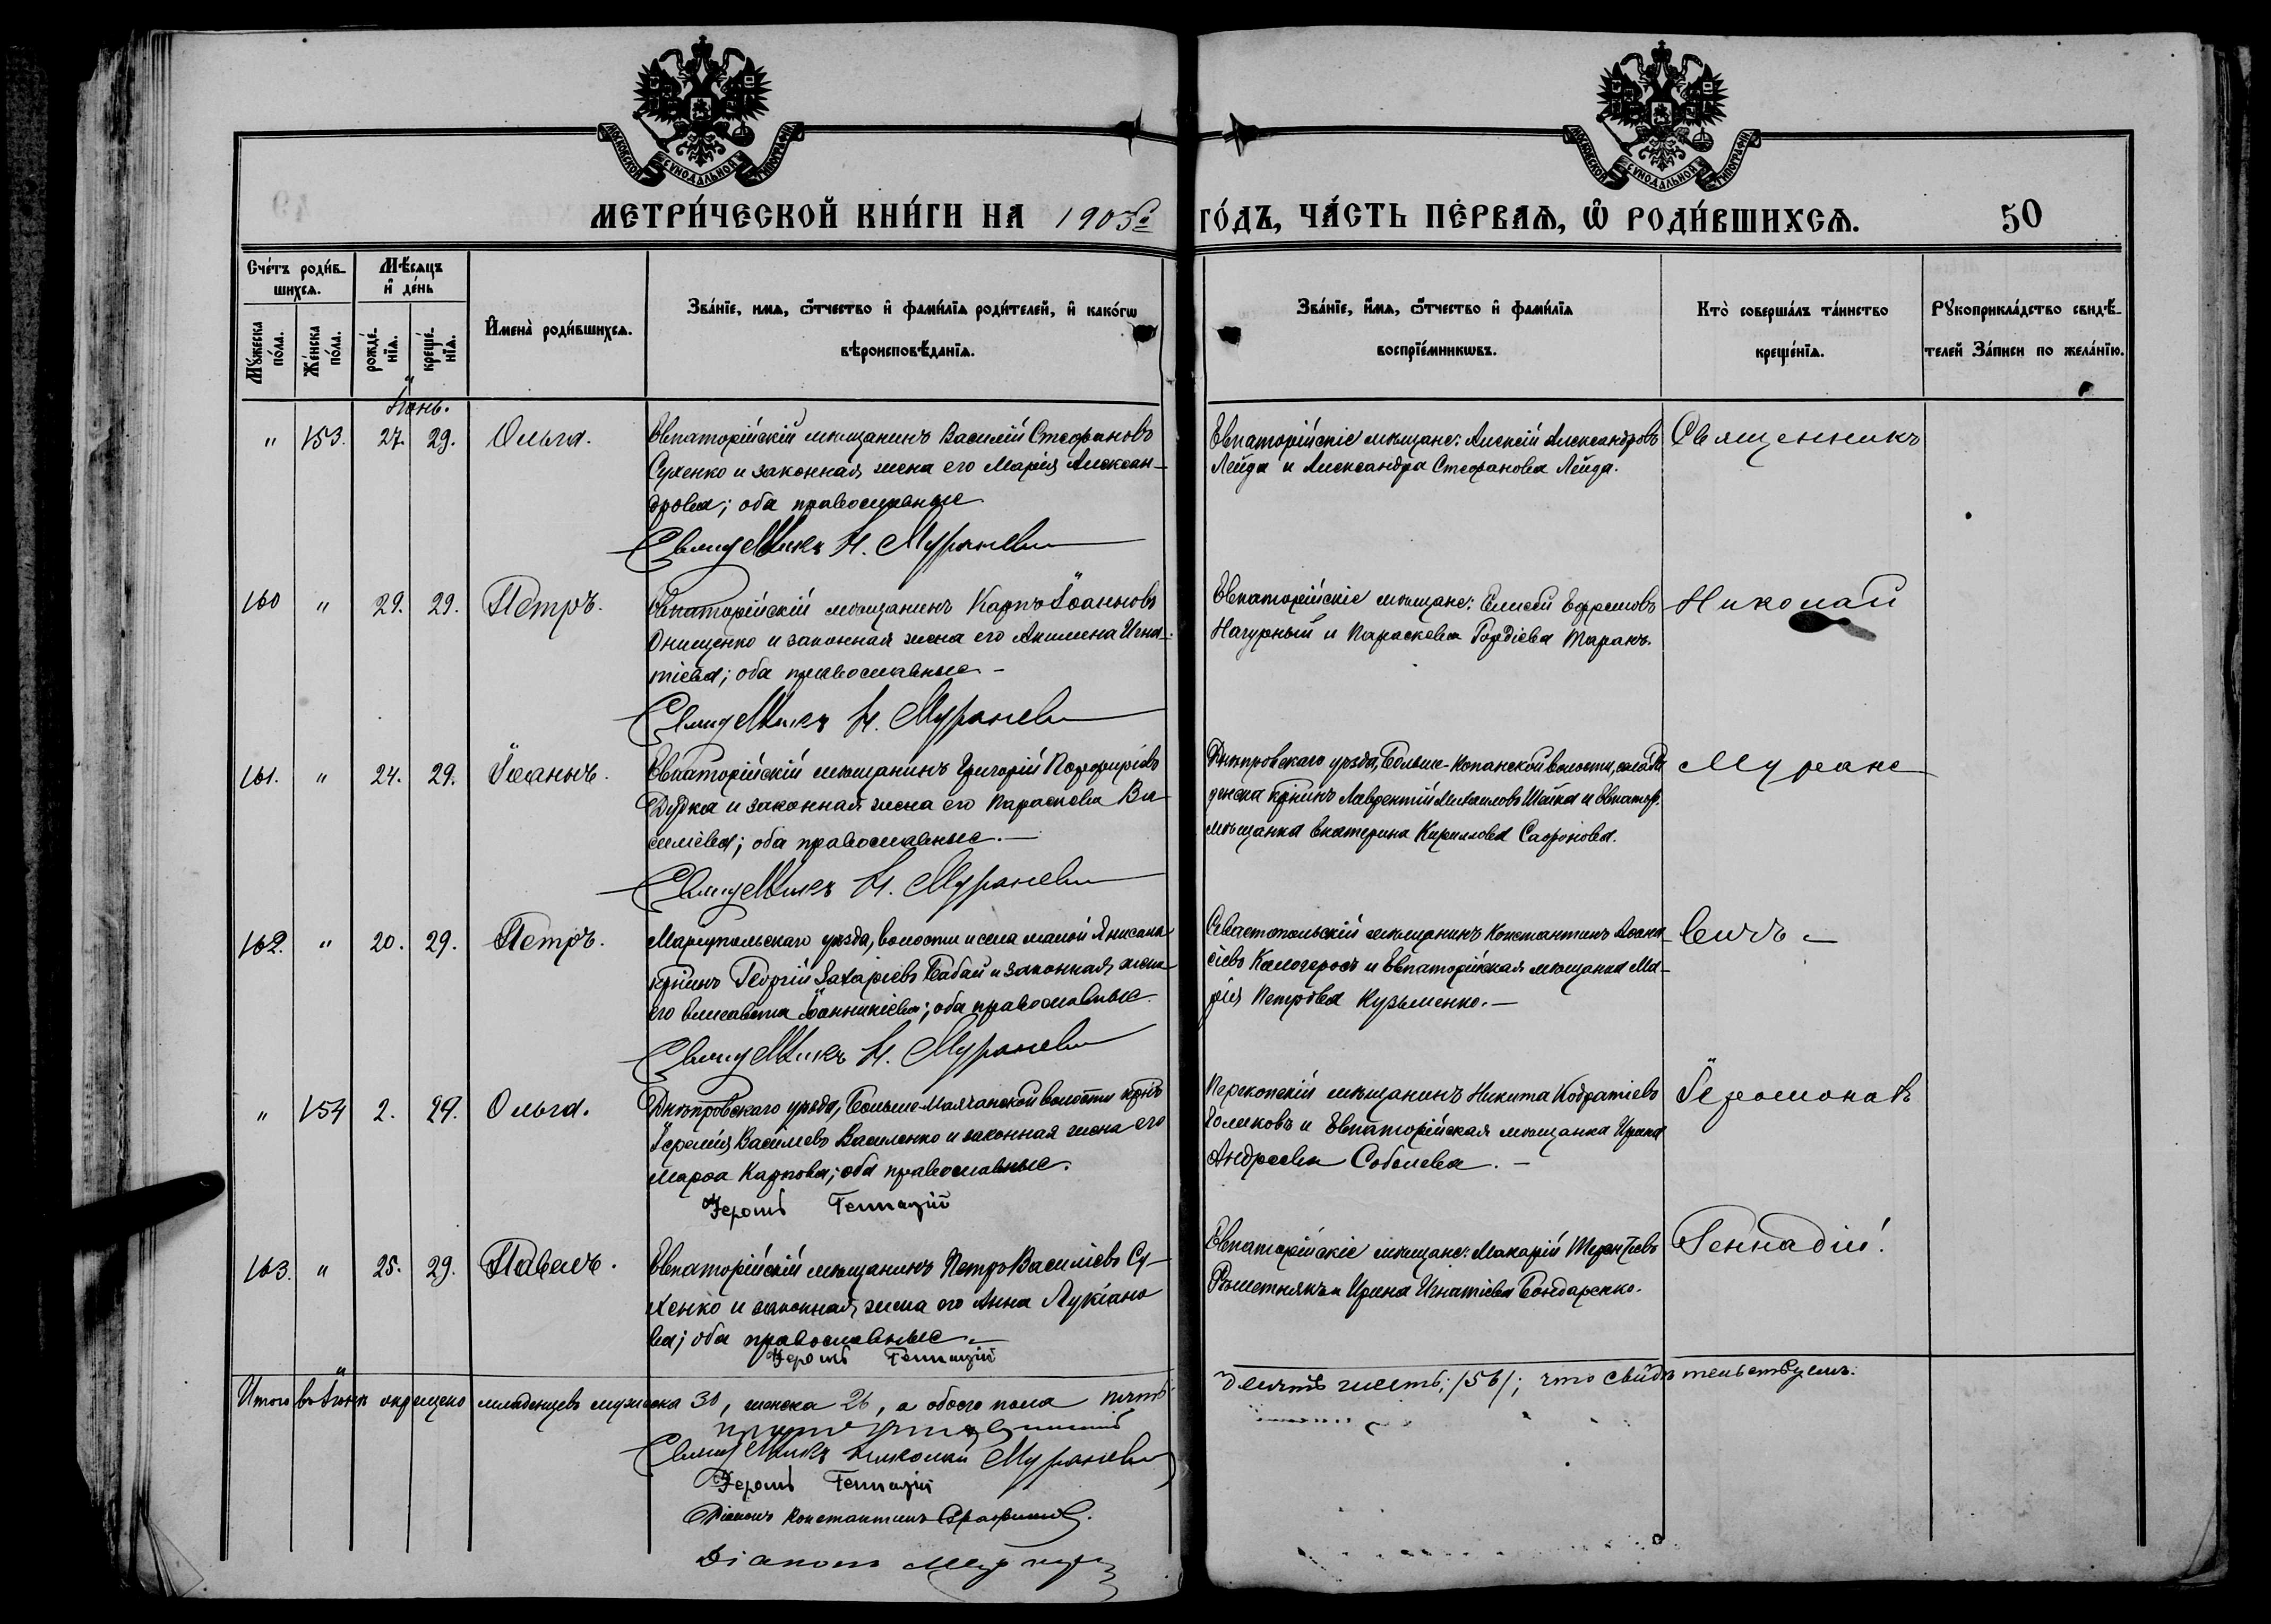 МОСКОВСКОЙ СѴНОДАЛЬНОЙ ТИПОГРАФІИ
МОСКОВСКОЙ СѴНОДАЛЬНОЙ ТИПОГРАФІИ
МЕТРИ́ЧЕСКОЙ КНИ́ГИ НА 1903й ГО́ДЪ, ЧА́СТЬ ПЕ́РВАѦ, Ѡ҆ РОДИ́ВШИХСѦ. 50
Сче́тъ роди́в-
шихсѧ.
Мꙋ́жеска по́ла.
Же́нска по́ла.
Мѣ́сѧцъ
и҆ де́нь
рожде́нїѧ.
креще́нїѧ.
И҆мена̀ роди́вшихсѧ.
Зва́нїе, имѧ, ѻ҆́тчество и҆ фами́лїѧ роди́телей, и҆ како́гѡ
вѣроисповѣ́данїѧ.
Зва́нїе, и҆́мѧ, ѻ҆́тчество и҆ фами́лїѧ
воспрїе́мникѡвъ.
Кто̀ соверша́лъ та́инство
креще́нїѧ.
Рꙋкоприкла́дство свидѣ́-
телей За́писи по жела́нїю.
Іюнь.
" 153. 27. 29. Ольга.
Евпаторійскій мѣщанинъ Василій Стефановъ
Сухенко и законная жена его Марія Алексан-
дрова; оба православные
Священникъ Н. Мураневичъ
Евпаторійскіе мѣщане: Алексій Александровъ
Лейда и Александра Стефанова Лейда.
Священникъ
160 " 29. 29. Петръ.
Евпаторійскій мѣщанинъ Карпъ Іоанновъ
Онищенко и законная жена его Акилина Игна-
тіева; оба православные –
Священникъ Н. Мураневичъ
Евпаторійскіе мѣщане: Елисей Ефремовъ
Нагурный и Параскева Гордіева Таранъ.
Николай
161. " 24. 29. Іоаннъ.
Евпаторійскій мѣщанинъ Григорій Порфиріевъ
Дудка и законная жена его Параскева Ва-
силіева; оба православные. –
Священникъ Н. Мураневичъ
Днѣпровскаго уѣзда, Больше-Копанской волости, села
кр҃нинъ Лаврентій Михаиловъ Шейка и Евпатор.
мѣщанка Екатерина Кириллова Сафонова.
Муране
162. " 20. 29. Петръ.
Маріупольскаго уѣзда, волости и села малой Янисоля
кр҃нинъ Георгій Захаріевъ Бабай и законная жена
его Елисавета Іоанникіева; оба православные.
Священникъ Н. Мураневичъ
Севастопольскій мѣщанинъ Константинъ Аѳана-
сіевъ Калогеросъ и Евпаторійская мѣщанка Ма-
рія Петрова Кузьменко. –
вичъ –
" 154 2. 29. Ольга.
Днѣпровскаго уѣзда, Больше-Маячанской волости кр҃нъ
Іеремія Василіевъ Василенко и законная жена его
Марѳа Карпова; оба православные.
Іеромъ Геннадій
Перекопскій мѣщанинъ Никита Кодратіевъ
Голиковъ и Евпаторійская мѣщанка Ирина
Андреева Соболева. –
Іеромонахъ
163. " 25. 29. Павелъ.
Евпаторійскій мѣщанинъ Петръ Василіевъ Су-
хенко и законная жена его Анна Лукіано
ва; оба православные. –
Іеромъ Геннадій
Евпаторійскіе мѣщане: Макарій Терентіевъ
Рѣшетнякъ и Ирина Игнатіева Бондаренко.
Геннадій.
Итого въ Іюнѣ окрещено младенцевъ мужеска 30, женска 26, а обоего пола пять-
десятъ шесть; /56/; что свидѣтельствуемъ.
Священникъ Николай Мураневичъ
Іеромъ Геннадій
Діаконъ Константинъ
Діаконъ